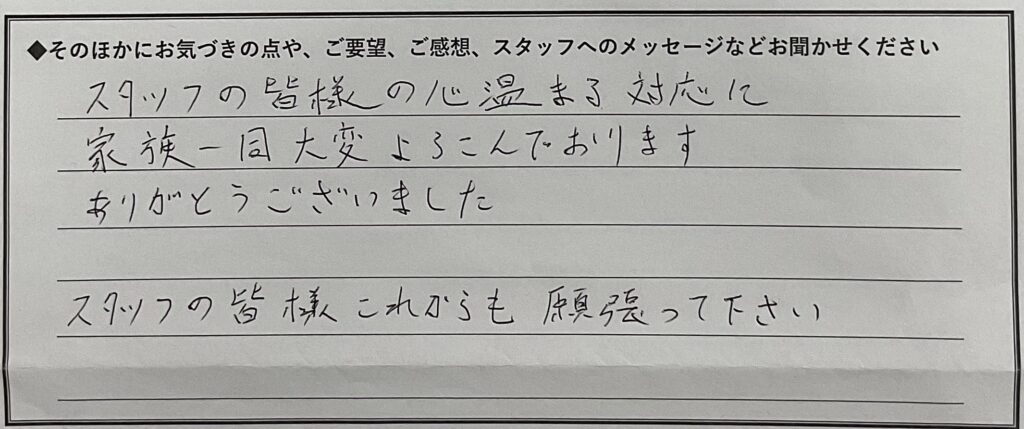 ◆そのほかにお気づきの点や、ご要望、ご感想、スタッフへのメッセージなどお聞かせください
スタッフの皆様の心温まる対応に
家族一同大変よろこんでおります
ありがとうございました
スタッフの皆様これからも願張って下さい